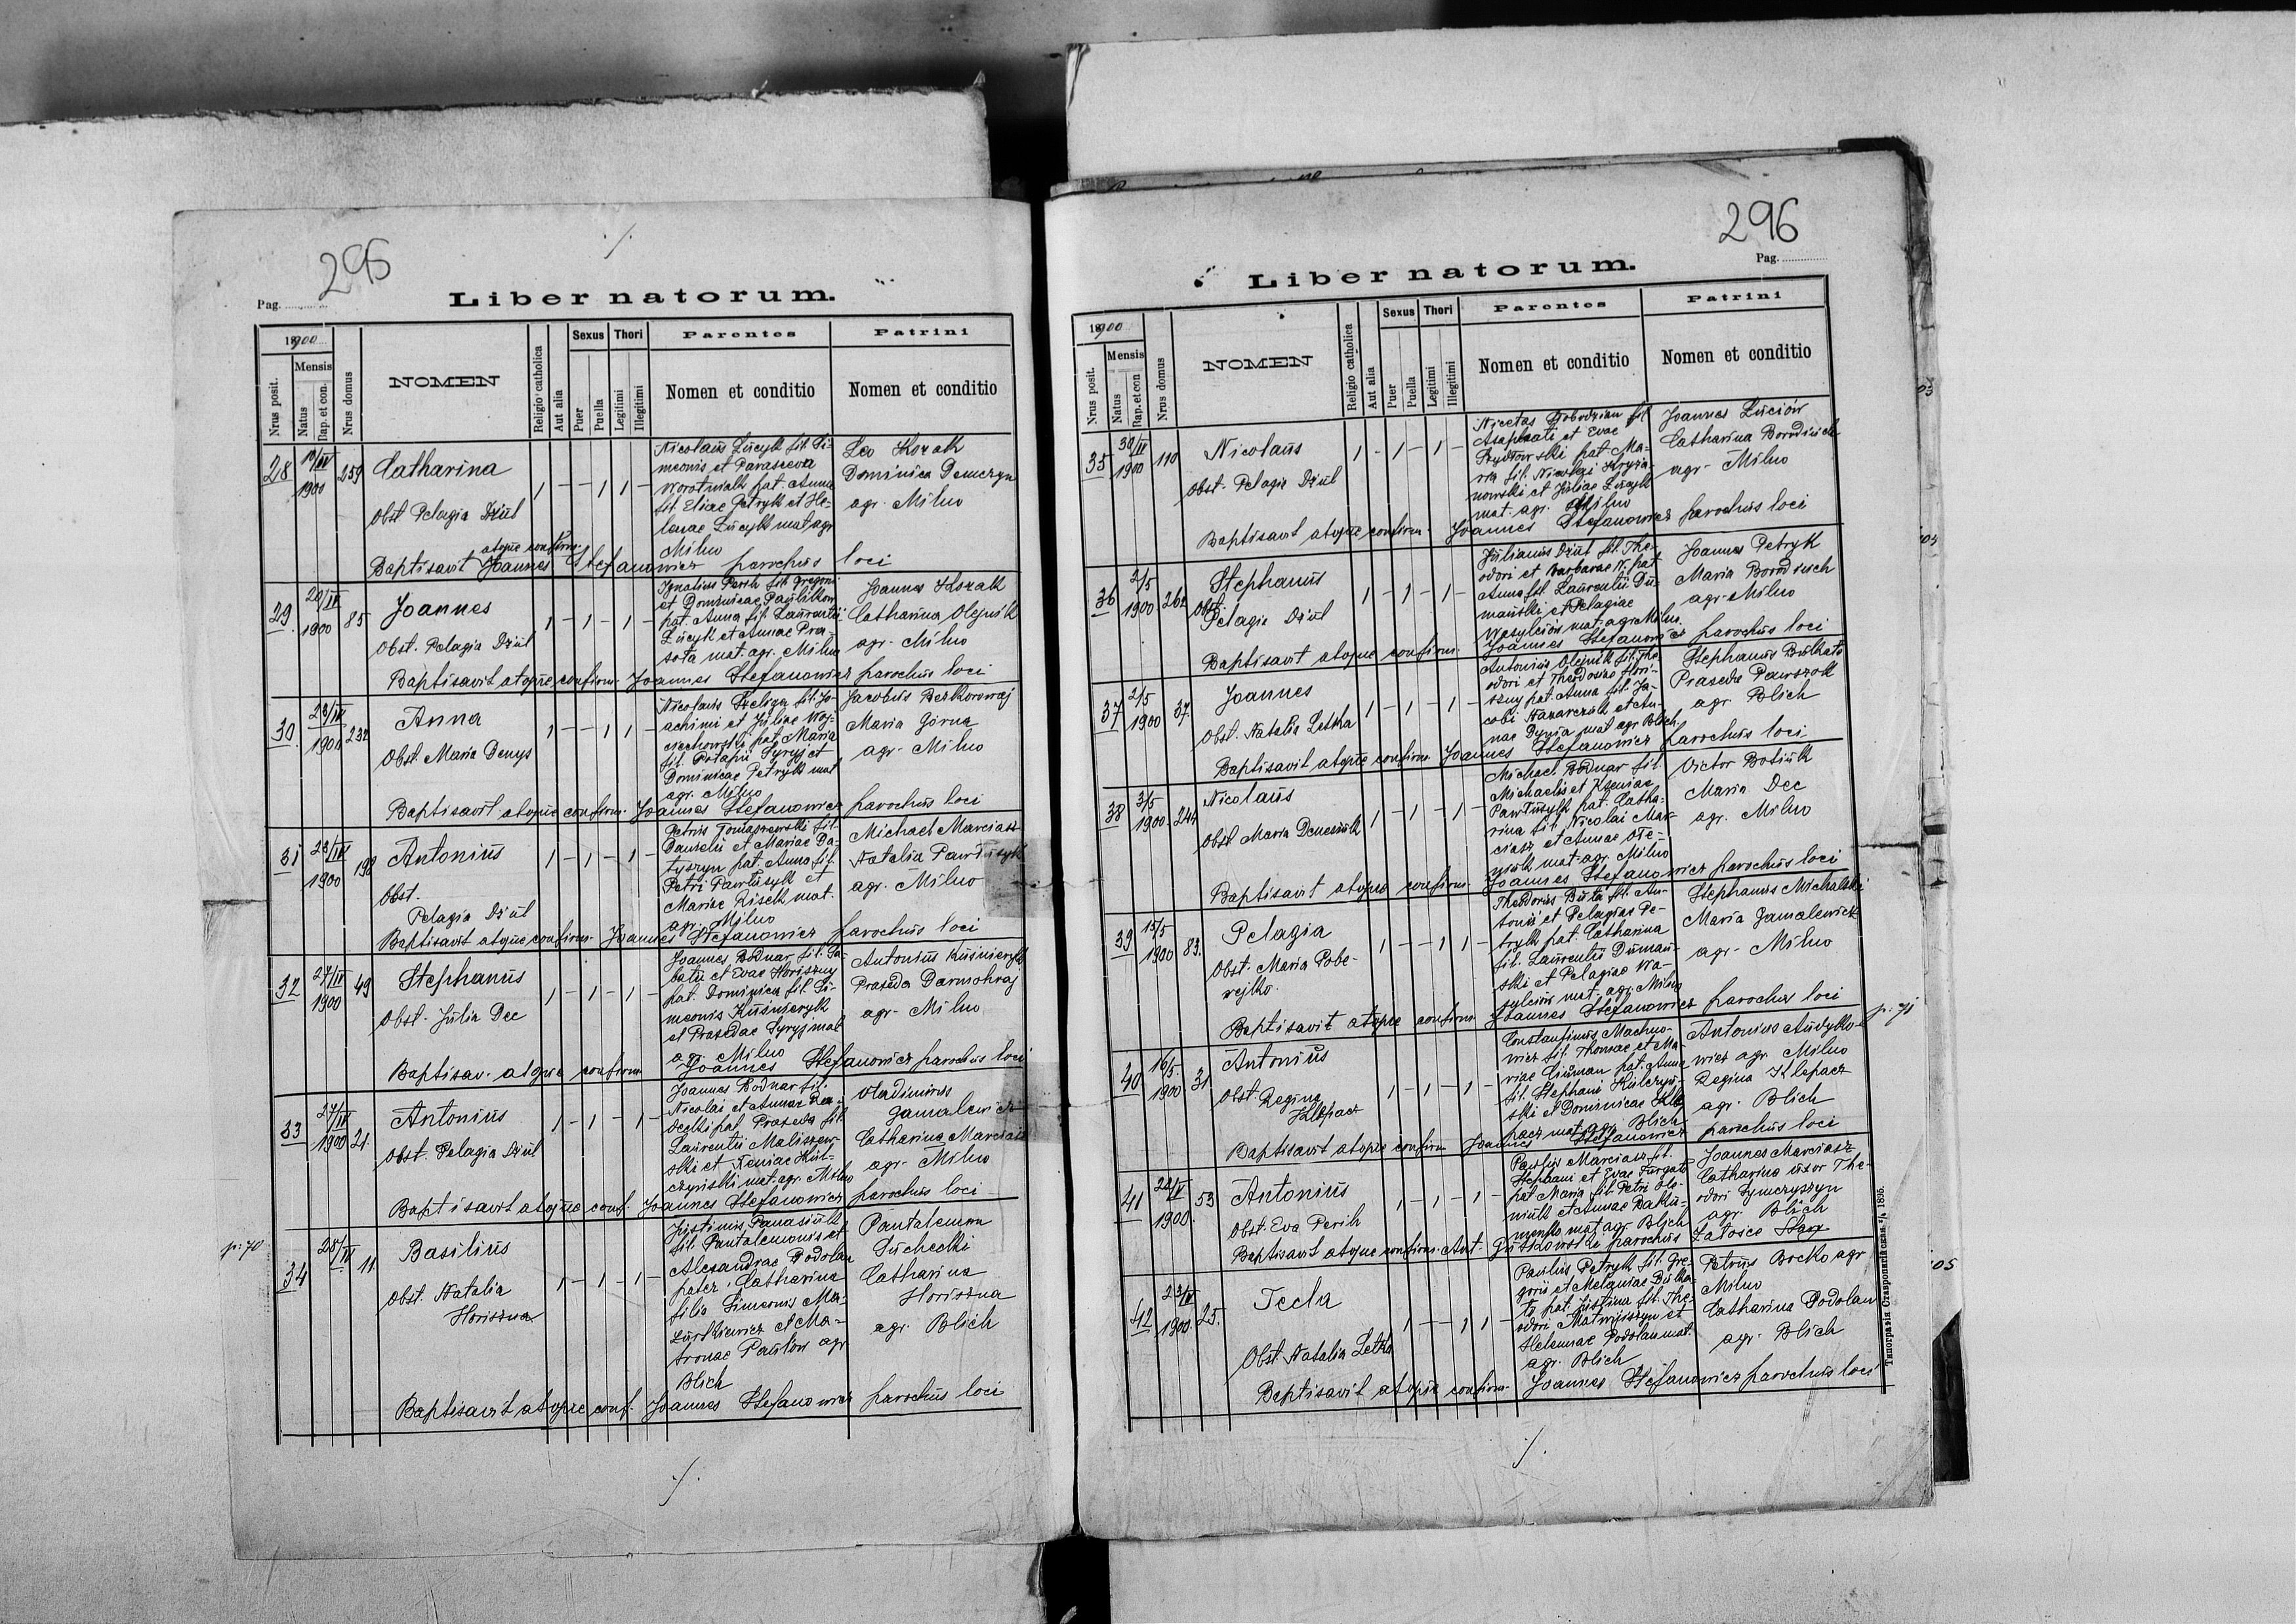 295
Pag.
Liber natorum.
1900
Mensis
Nrus posit.
Natus
Bap. et con.
Nrus domus
NOMEN
Religio catholica
Aut alia
Sexus
Puer
Puella
Thori
Legitimi
Illegitimi
Parentes
Nomen et conditio
Patrini
Nomen et conditio
28
1900
259
Catharina
Obst Pelagia Dziul
1 – – 1 1 –
Nicolaus Lucyk fil. Si-
meonis et Parasceva
Worotniak pat. Anna
fil. Eliae Petryk et He-
lenae Lucyk mat agr
Milno
Leo Kozak
Dominica Demczyn
agr. Milno
Baptisavit atque confirm. Joannes Stefanowicz parochus loci
29
20/IV
1900
85
Joannes
Obst. Pelagia Dziul
1 – 1 – 1 –
Ignatius Perih fil. Gregorii
et Dominicae Paulikow
pat. Anna fil. Laurentii
Lucyk et Annae Pro-
sota mat. agr. Milno
Joannes Kozak
Catharina Olejnik
agr. Milno
Baptisavit atque confirm. Joannes Stefanowicz parochus loci
30
23/IV
1900
232
Anna
Obst. Maria Denys
1 – – 1 1 –
Nicolaus Szeliga fil. Jo-
achimi et Juliae Woj-
ciechowski pat. Maria
fil. Potapii Syryj et
Dominicae Petryk mat
agr. Milno
Jacobus Bezkorowaj
Maria Górna
agr. Milno
Baptisavit atque confirm. Joannes Stefanowicz parochus loci
31
23/IV
1900
198
Antonius
Obst.
Pelagia Dziul
1 – 1 – 1 –
Petrus Tomaszewski fil.
Danielis et Mariae Da-
tyszyn pat. Anna fil.
Petri Pawlusyk et
Mariae Zisek mat.
agr. Milno
Michael Marciasz
Natalia Pawlusyk
agr. Milno
Baptisavit atque confirm. Joannes Stefanowicz parochus loci
32
27/IV
1900
49
Stephanus
Obst. Julia Dec
1 – 1 – 1 –
Joannes Bodnar fil. Sa-
batii et Evae Horiszny
pat. Dominica fil. Si-
meonis Kuśnieryk
et Prasedae Syryj mat
agr. Milno
Antonius Kuśnieryk
Praseda Darmohraj
agr. Milno
Baptisav. atque confirm. Joannes Stefanowicz parochus loci
33
27/IV
1900
21
Antonius
Obst. Pelagia Dziul
1 – 1 – 1 –
Joannes Bodnar fil.
Nicolai et Annae Ra-
decki pat. Praseda fil.
Laurentii Maliszew-
ski et Xeniae Kul-
czyński mat. agr. Milno
Vladimirus
Jamalewicz
Catharina Marciasz
agr. Milno
Baptisavit atque conf. Joannes Stefanowicz parochus loci
p. 70
34
28/IV
11
Basilius
Obst. Natalia
Horiszna
1 – 1 – 1 –
Justinus Panasiuk
fil. Pantalemonis et
Alexandrae Podolan
pater, Catharina
filia Simeonis Ma-
zurkiewicz et Ma-
tronae Paulow agr
Blich
Pantalemon
Suchecki
Catharina
Horiszna
agr. Blich
Baptisavit atque conf. Joannes Stefanowicz parochus loci
296
Pag.
Liber natorum.
1900
Mensis
Nrus posit.
Natus
Bap. et con
Nrus domus
NOMEN
Religio catholica
Aut alia
Sexus
Puer
Puella
Thori
Legitimi
Illegitimi
Parentes
Nomen et conditio
Patrini
Nomen et conditio
35
30/IV
1900
110
Nicolaus
Obst. Pelagia Dziul
1 – 1 – 1 –
Nicetas fil
Asaphati et Evae
pat. Ma-
ria fil. Nicolai Kryża-
nowski et Juliae Lucyk
mat. agr. Milno
Joannes Luciów
Catharina Borodziuch
agr. Milno
Baptisavit atque confirm. Joannes Stefanowicz parochus loci
36
2/5
1900
262
Stephanus
Obst.
Pelagia Dziul
1 – 1 – 1 –
Julianus Dziul fil. The-
odori et Barbarae N. pat.
Anna fil. Laurentii Du-
mański et Pelagiae
Wasylciów mat. agr. Milno
Joannes Petryk
Maria Borodziuch
agr. Milno
Baptisavit atque confirm. Joannes Stefanowicz parochus loci
37
2/5
1900
37.
Joannes
Obst. Natalia Letka
1 – 1 – 1 –
Antonius Olejnik fil. The-
odori et Theodosiae Hori-
szny pat. Anna fil. Ja-
cobi Nazarczuk et An-
nae Dynia mat. agr. Blich.
Stephanus Bulkato
Praseda Pawszok
agr. Blich
Baptisavit atque confirm. Joannes Stefanowicz parochus loci
38
3/5
1900
244
Nicolaus
Obst. Maria Denesiuk
1 – 1 – 1 –
Michael Bodnar fil.
Michaelis et Kseniae
Pawlusyk pat. Catha-
rina fil. Nicolai Mar-
ciasz et Annae Ole-
niuk mat. agr. Milno
Victor Botiuk
Maria Dec
agr. Milno
Baptisavit atque confirm. Joannes Stefanowicz parochus loci
39
15/5
1900
83.
Pelagia
Obst. Maria Pobe-
rejko.
1 – – 1 1 –
Theodorus Buta fil. An-
tonii et Pelagiae Pe-
tryk pat. Catharina
fil. Laurentii Dumań-
ski et Pelagiae Wa-
sylciów mat. agr. Milno
Stephanus Michalski
Maria Jamalewicz
agr. Milno
Baptisavit atque confirm. Joannes Stefanowicz parochus loci
p. 71
40
16/5.
1900
31
Antonius
Obst. Regina
Klepacz
1 – 1 – 1 –
Constantinus Machno-
wicz fil. Thomae et Ma
riae Ciuman pat. Anna
fil. Stephani Kulczyń-
ski et Dominicae Kle
pacz mat. agr. Blich
Antonius Audyko-
wicz agr. Milno
Regina Klepacz
agr. Blich
Baptisavit atque confirm. Joannes Stefanowicz parochus loci
41
22/V
1900.
53
Antonius
Obst. Eva Perih
1 – 1 – 1 –
Paulus Marciasz fil.
Stephani et Evae Furgato
pat. Maria fil. Petri Ole-
niuk et Annae Baku-
menko mat. agr. Blich
Joannes Marciasz
Catharina uxor The-
odori Symczyszyn
agr. Blich
Baptisavit atque confirm. Ant. Gutkowski parochus Załośce Stare
42
23/V
1900.
25.
Tecla
Obst. Natalia Letka
1 – – 1 1 –
Paulus Petryk fil. Gre-
gorii et Melaniae Bulka-
to pat. Justina fil. The-
odori Matwijiszyn et
Helennae Podolan mat.
agr. Blich
Petrus Bocko agr
Milno
Catharina Podolan
agr. Blich
Baptisavit atque confirm. Joannes Stefanowicz parochus loci
Типографія Ставропигійская 1895.